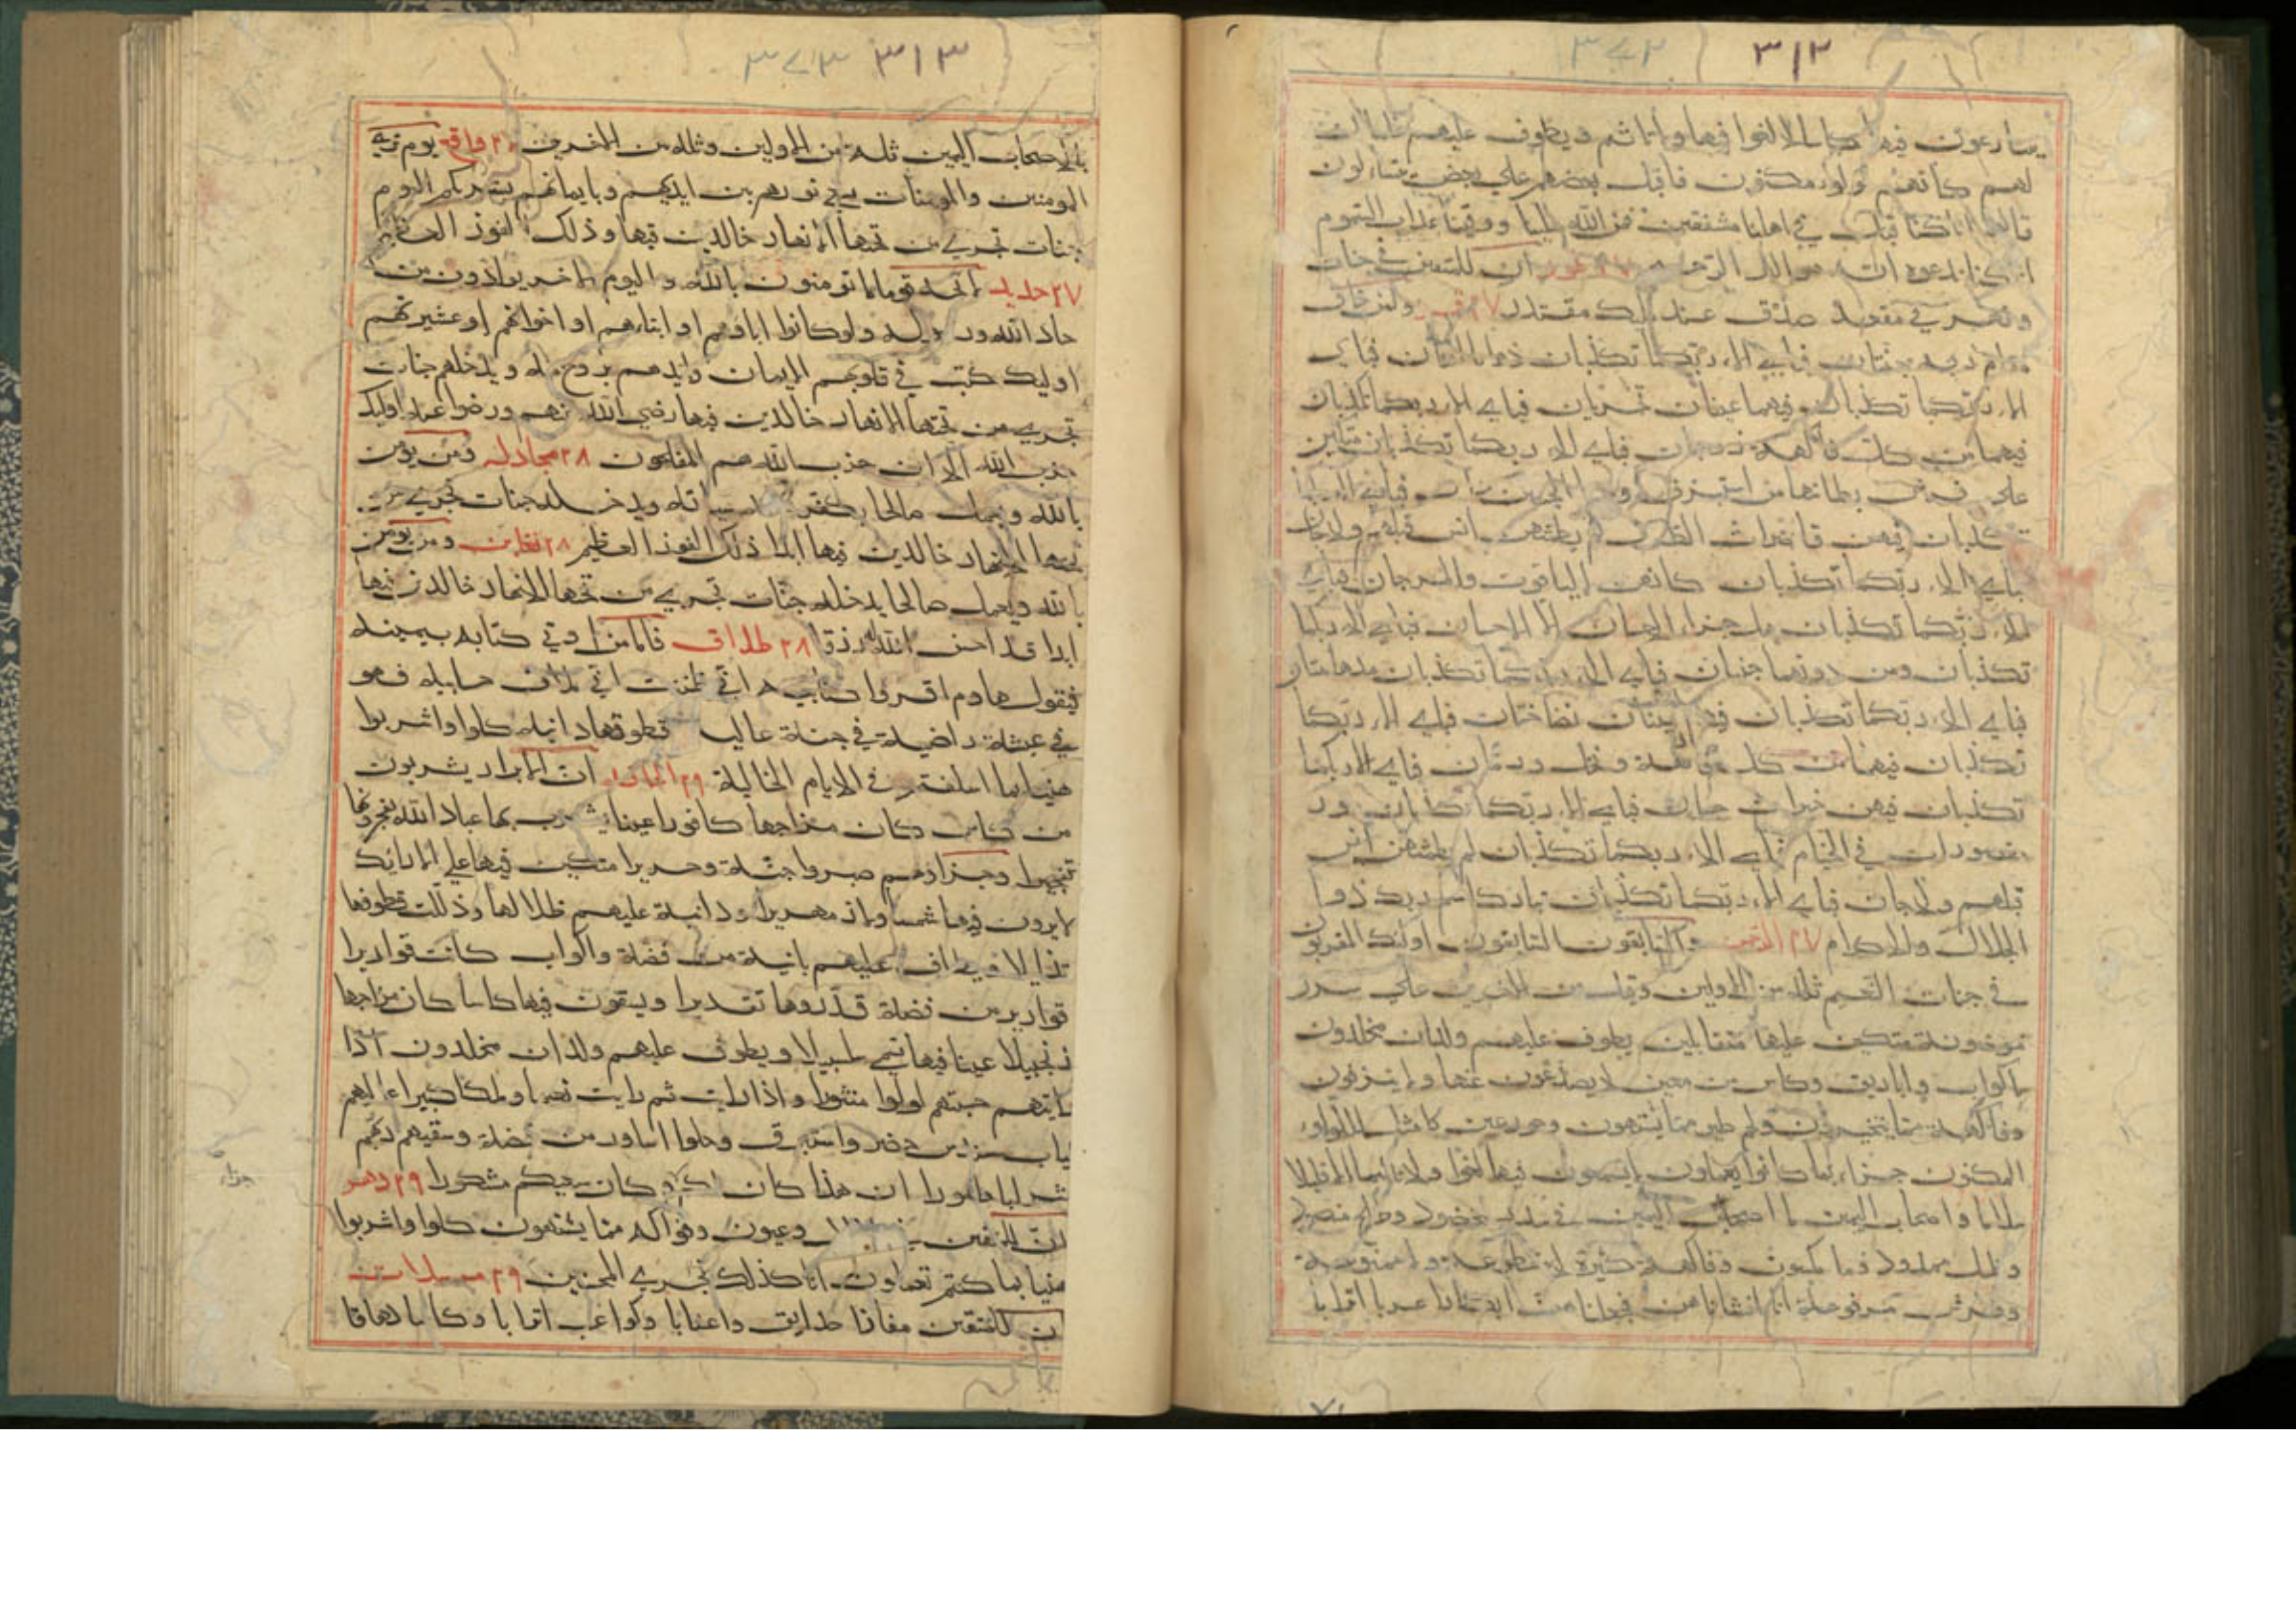 ٣١٢ ٣٧٢
يتنازعون فيها كاسا لا لغوا فيها ولا تاثيم ويطوف عليهم غلمان
لهم كانهم لولو مكنون فاقبل بعضهم علي بعض يتسالون
قالوا انا كنا قبل في اهلنا مشفقين فمن الله علينا ووقينا عذاب السموم
انا كنا ندعوه انه هو البر الرحيم ٢٧ طور ان للمتقين في جنات
ونهر في مقعد صدق عند مليك مقتدر ٢٧ قمر ولمن خاف
مقام ربه جنتان فباي الاء ربكما تكذبان ذواتا افنان فباي
الاء ربكما تكذبان فيهما عينان تجريان فباي الاء ربكما تكذبان
فيهما من كل فاكهة زوجان فباي الاء ربكما تكذبان متكين
علي فرش بطائنها من استبرق وجنا الجنتين دان فباي الاء ربكما
تكذبان فيهن قاصرات الطرف لم يطمثهن انس قبلهم ولا جان
فباي الاء ربكما تكذبان كانهن الياقوت والمرجان فباي
الاء ربكما تكذبان هل جزاء الاحسان الا الاحسان فباي الاء ربكما
تكذبان ومن دونهما جنتان فباي الاء ربكما تكذبان مدهامتان
فباي الاء ربكما تكذبان فيهما عينان نضاختان فباي الاء ربكما
تكذبان فيهما من كل فاكهة ونخل ورمان فباي الاء ربكما
تكذبان فيهن خيرات حسان فباي الاء ربكما تكذبان حور
مقصورات في الخيام فباي الاء ربكما تكذبان لم يطمثهن انس
قبلهم ولا جان فباي الاء ربكما تكذبان تبارك اسم ربك ذو
الجلال والاكرام ٢٧ الرحمن والسابقون السابقون اوليك المقربون
في جنات النعيم ثلة من الاولين وقليل من الاخرين علي سرر
موضونة متكين عليها متقابلين يطوف عليهم ولدان مخلدون
باكواب واباريق وكاس من معين لا يصدعون عنها ولا ينزفون
وفاكهة مما يتخيرون ولحم طير مما يشتهون وحور عين كامثل اللولو
المكنون جزاء بما كانوا يعملون لا يسمعون فيها لغوا ولا تاثيما الا قيلا
سلاما واصحاب اليمين ما اصحاب اليمين في سدر مخضود وطلح منضود
وظل ممدود وماء مسكوب وفاكهة كثيرة لا مقطوعة ولا ممنوعة
وفرش مرفوعة انا انشاناهن فجعلناهن ابكارا عربا اترابا
٣١٣ ٣٧٣
لاصحاب اليمين ثلة من الاولين وثلة من الاخرين ٢٧ واقعة يوم تري
المومنين والمومنات يسعي نورهم بين ايديهم وبايمانهم بشريكم اليوم
جنات تجري من تحتها الانهار خالدين فيها وذلك الفوز العظيم
٢٧ حديد لا تجد قوما يومنون بالله واليوم الاخر يوادون من
حاد الله ورسوله ولو كانوا اباءهم او ابناءهم او اخوانهم او عشيرتهم
اوليك كتب في قلوبهم الايمان وايدهم بروح منه ويدخلهم جنات
تجري من تحتها الانهار خالدين فيها رضي الله عنهم ورضوا عنه اوليك
حزب الله الا ان حزب الله هم المفلحون ٢٨ مجادله ومن يومن
بالله ويعمل صالحا يكفر عنه سياته ويدخله جنات تجري من
تحتها الانهار خالدين فيها ابدا ذلك الفوز العظيم ٢٨ تغابن ومن يومن
بالله ويعمل صالحا يدخله جنات تجري من تحتها الانهار خالدين فيها
ابدا قد احسن الله له رزقا ٢٨ طلاق فاما من اوتي كتابه بيمينه
فيقول هاوم اقروا كتابيه اني ظننت اني ملاق حسابيه فهو
في عيشة راضية في جنة عالية قطوفها دانية كلوا واشربوا
هنيا بما اسلفتم في الايام الخالية ٢٩ الحاقه ان الابرار يشربون
من كاس كان مزاجها كافورا عينا يشرب بها عباد الله يفجرونها
تفجيرا وجزاهم بما صبروا جنة وحريرا متكين فيها علي الارايك
لا يرون فيها شمسا ولا زمهريرا ودانية عليهم ظلالها وذللت قطوفها
تذليلا ويطاف عليهم بانية من فضة واكواب كانت قواريرا
قوارير من فضة قدروها تقديرا ويسقون فيها كاسا كان مزاجها
زنجبيلا عينا فيها تسمي سلسبيلا ويطوف عليهم ولدان مخلدون اذا
رايتهم حسبتهم لولوا منثورا واذا رايت ثم رايت نعيما وملكا كبيرا عاليهم
ثياب سندس خضر واستبرق وحلوا اساور من فضة وسقيهم ربهم
شرابا طهورا ان هذا كان لكم جزاء وكان سعيكم مشكورا ٢٩ دهر
جزاء
ان المتقين في ظلال وعيون وفواكه مما يشتهون كلوا واشربوا
هنيا بما كنتم تعملون انا كذلك نجزي المحسنين ٢٩ مرسلات
ان للمتقين مفازا حدايق واعنابا وكواعب اترابا وكاسا دهاقا